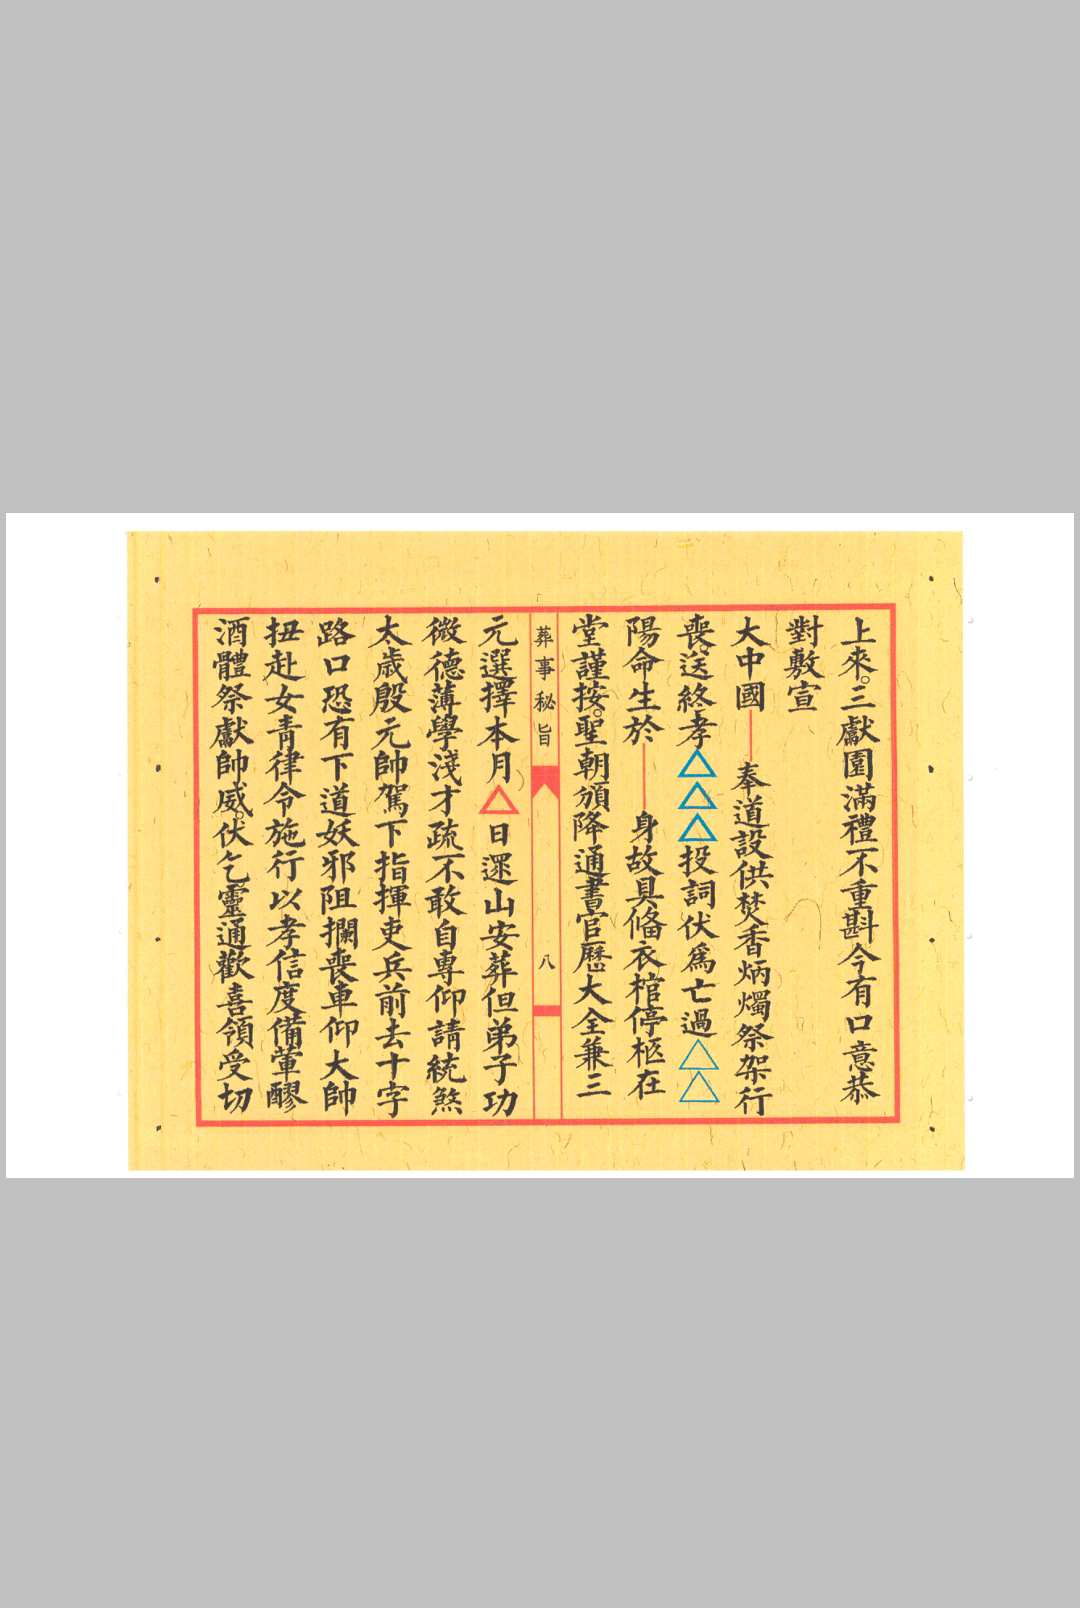 上來。三獻圓滿禮不重斟今有口意恭
對敷宣
大中國奉道設供焚香炳燭祭架行
喪。送終孝△△△投詞伏爲亡過△△
陽命生於身故具俻衣棺停柩在
堂謹按。聖朝頒降通書官曆大全兼三
葬事秘旨 八
元選擇本月△日還山安葬但弟子功
微德薄學淺才疏不敢自專仰請統煞
太歲殷元帥駕下指揮吏兵前去十字
路口恐有下道妖邪阻攔喪車仰大帥
扭赴女青律令施行以孝信度備葷醪
酒體祭獻帥威。伏乞靈通歡喜領受切